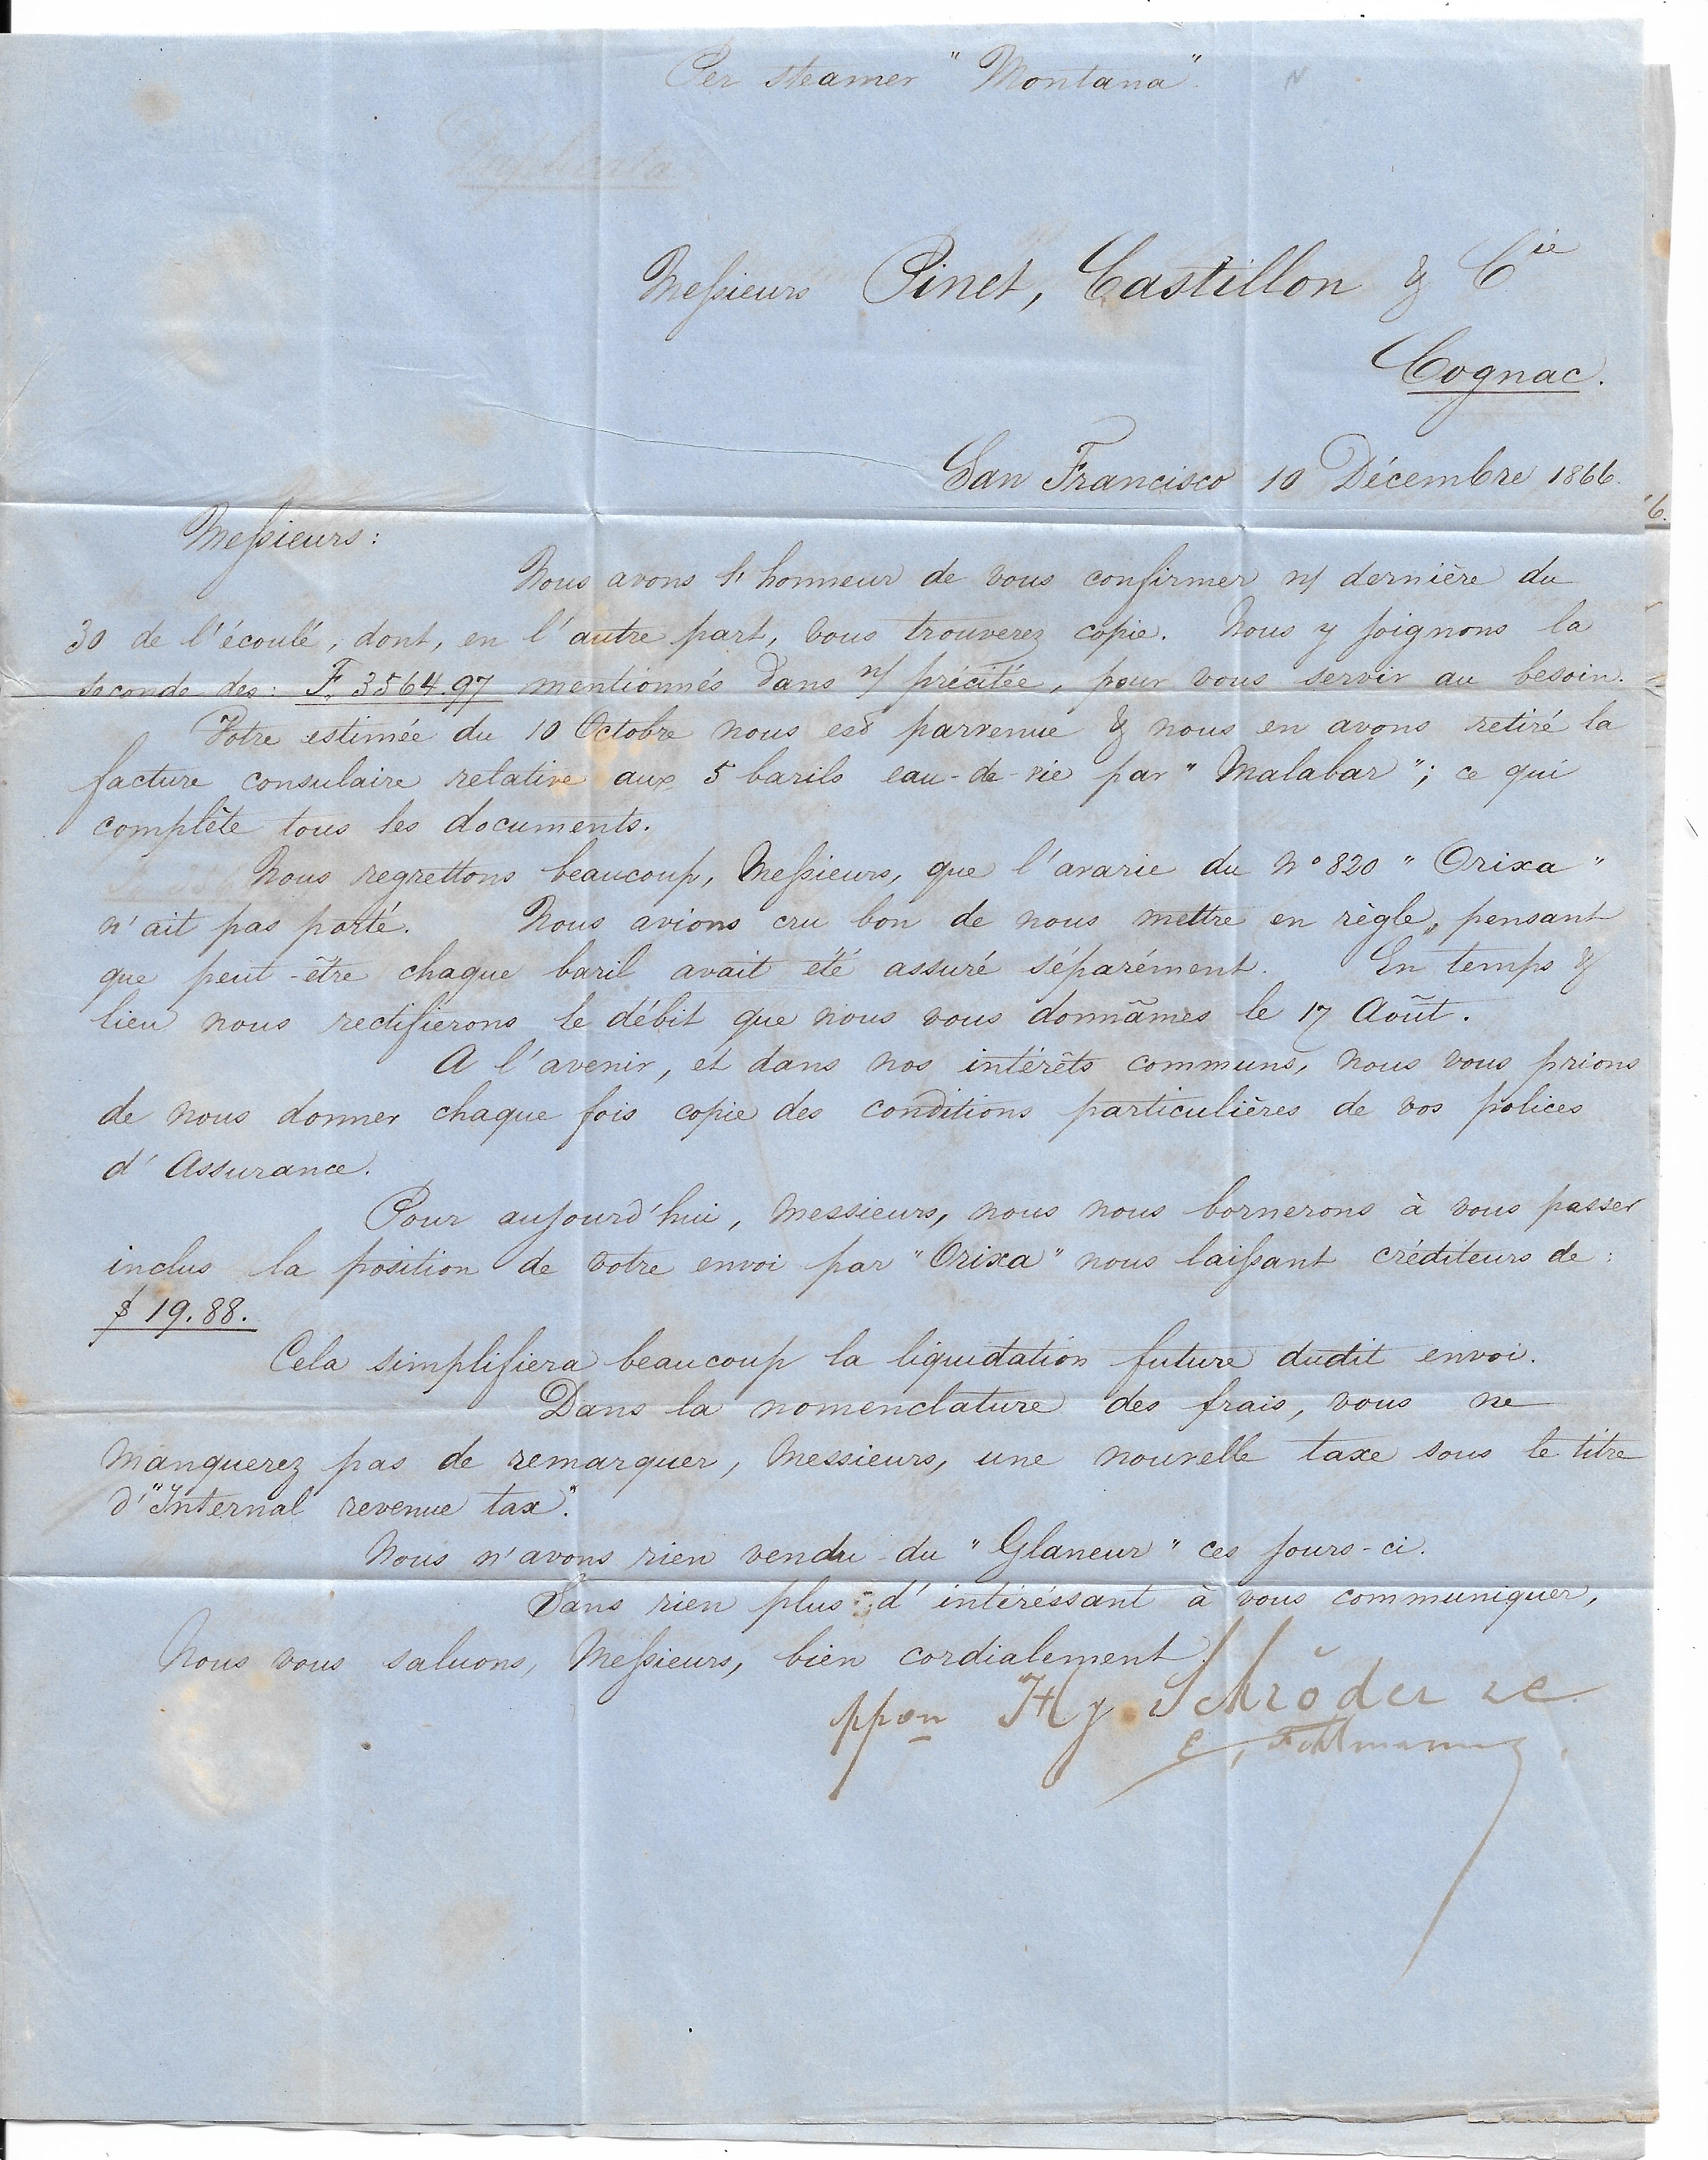 Per steamer "Montana".
Messieurs Pinet, Castillon & Cie
Cognac.
San Francisco 10 Décembre 1866.
6.
Messieurs:
Nous avons l'honneur de vous confirmer n/ dernière du
30 de l'écoulé, dont, en l'autre part, vous trouverez copie. Nous y joignons la
seconde des: F. 3564.97 mentionnés dans n/ précitée, pour vous servir au besoin.
Votre estimée du 10 Octobre nous est parvenue & nous en avons retiré la
facture consulaire relative aux 5 barils eau-de-vie par "Malabar"; ce qui
complète tous les documents.
Nous regrettons beaucoup, Messieurs, que l'avarie du No 820 "Orixa"
n'ait pas porté. Nous avions cru bon de nous mettre en règle, pensant
que peut-être chaque baril avait été assuré séparément. En temps &
lieu nous rectifierons le débit que nous vous donnâmes le 17 Août.
A l'avenir, et dans nos intérêts communs, nous vous prions
de nous donner chaque fois copie des conditions particulières de vos polices
d'Assurance.
Pour aujourd'hui, Messieurs, nous nous bornerons à vous passer
inclus la position de votre envoi par "Orixa" nous laissant créditeurs de:
$ 19.88.
Cela simplifiera beaucoup la liquidation future dudit envoi.
Dans la nomenclature des frais, vous ne
manquerez pas de remarquer, Messieurs, une nouvelle taxe sous le titre
d'"Internal revenue tax".
Nous n'avons rien vendu du "Glaneur" ces jours-ci.
Sans rien plus d'intéréssant à vous communiquer,
Nous vous saluons, Messieurs, bien cordialement.
ppon Hy. Schröder &C